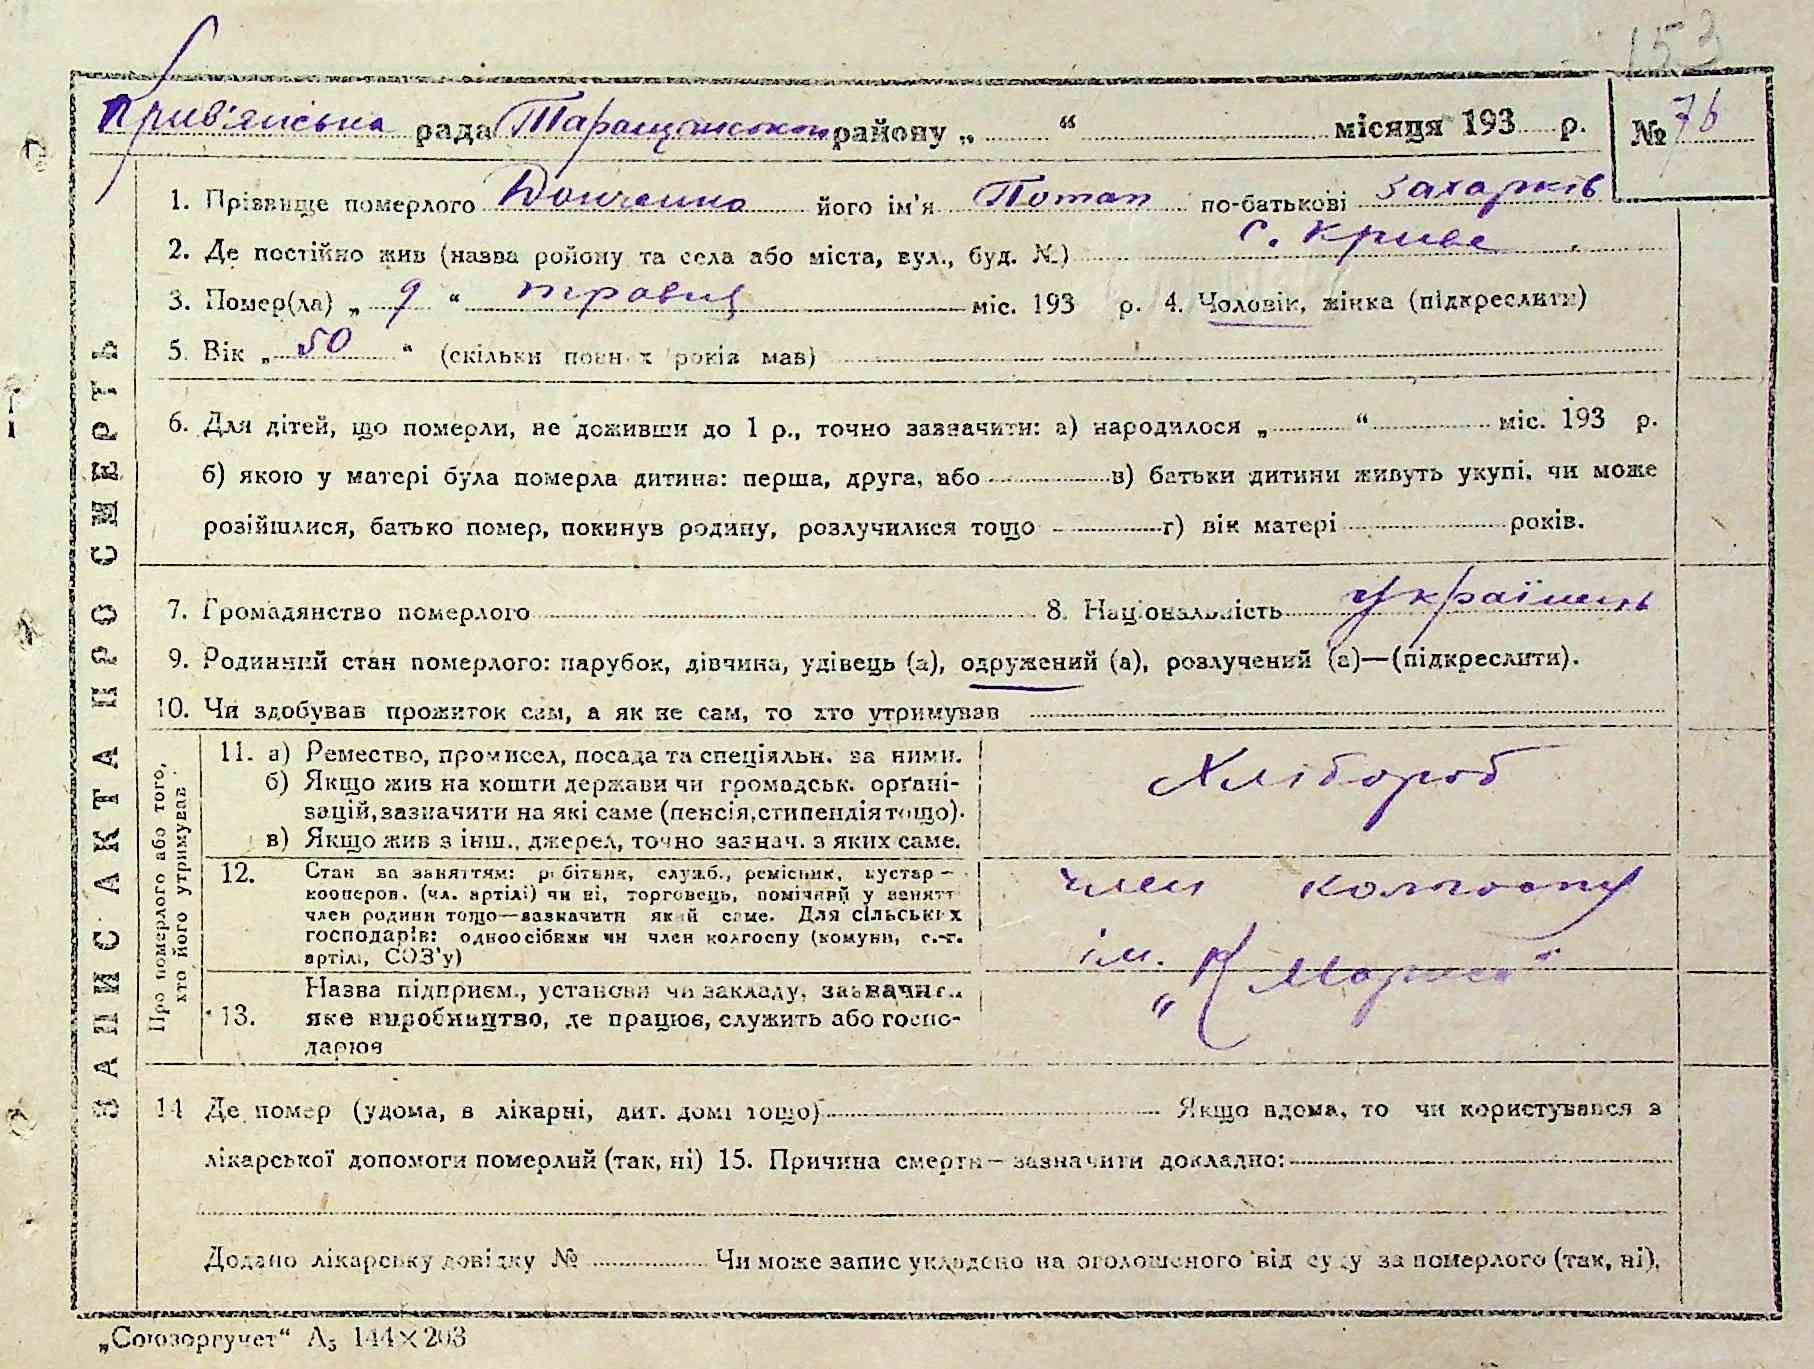 153
Крив'янська рада Таращанського району „ “ місяця 193 р. № 76
1. Прізвище померлого Донченко його ім'я Потап по-батькові Захарків
2. Де постійно жив (назва ройону та села або міста, вул., буд. №) с. Криве
3. Помер(ла) „ 9 “ травня міс. 193 р. 4. Чоловік, жінка (підкреслити)
5. Вік „ 50 “ (скільки повних років мав)
6. Для дітей, що померли, не доживши до 1 р., точно зазначити: а) народилося „ “ міс. 193 р.
б) якою у матері була померла дитина: перша, друга, або в) батьки дитини живуть укупі, чи може
розійшлися, батько помер, покинув родину, розлучилися тощо г) вік матері років.
7. Громадянство померлого 8. Національність українець
9. Родинний стан померлого: парубок, дівчина, удівець (а), одружений (а), розлучений (а)—(підкреслити).
10. Чи здобував прожиток сам, а як не сам, то хто утримував
ЗАПИС АКТА ПРО СМЕРТЬ
Про померлого або того,
хто його утримував
11. а) Ремество, промисел, посада та спеціяльн. за ними. Хлібороб
б) Якщо жив на кошти держави чи громадськ. орґані-
зацій, зазначити на які саме (пенсія, стипендія тощо).
в) Якщо жив з інш., джерел, точно зазнач. з яких саме.
12. Стан за заняттям: робітник, служб., ремісник, кустар— член колгоспу
кооперов. (чл. артілі) чи ні, торговець, помічний у занятт
член родини тощо—зазначити який саме. Для сільських
господарів: одноосібник чи член колгоспу (комуни, с.-г. ім.
артілі, СОЗ'у)
Назва підприєм., установи чи закладу, зазначив „К Маркса“
13. яке виробництво, де працює, служить або госпо-
дарює
14 Де помер (удома, в лікарні, дит. домі тощо) Якщо вдома, то чи користувався з
лікарської допомоги померлий (так, ні) 15. Причина смерти—зазначити докладно:
Додано лікарську довідку № Чи може запис укладено на оголошеного від суду за померлого (так, ні).
„Союзоргучет“ А₅ 144×203